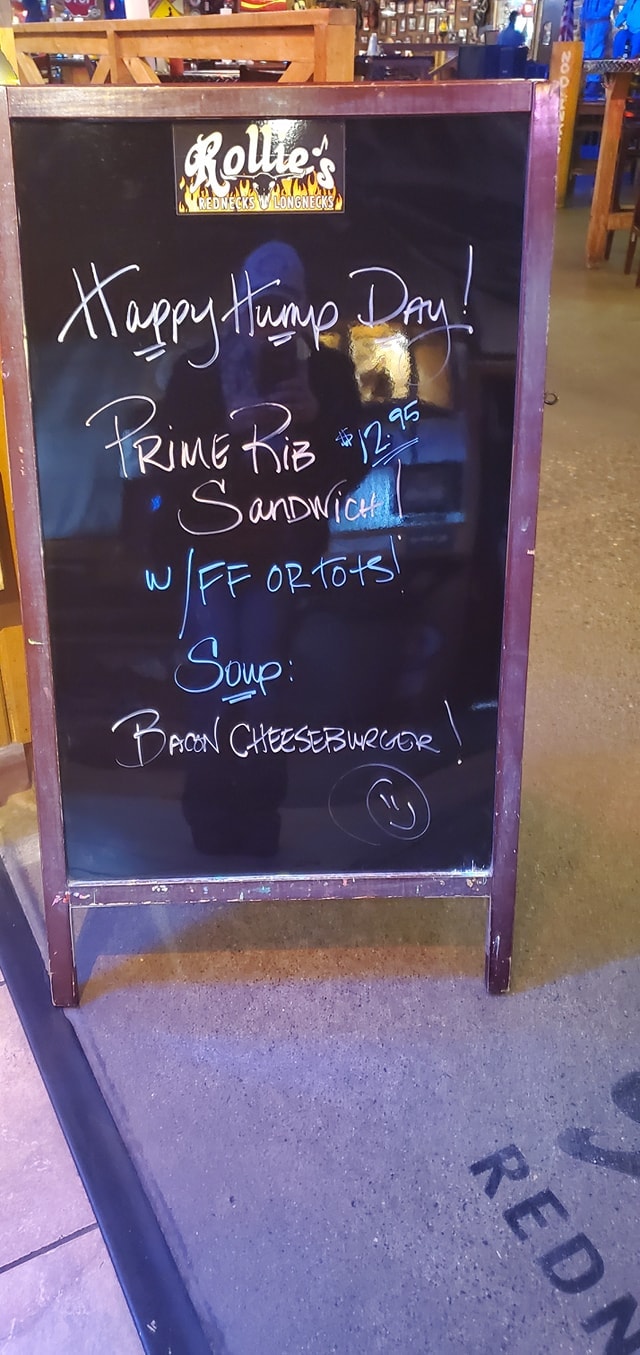 Rollie's
REDNECKS LONGNECKS
Happy Hump Day!
PRIME RIB $12.95
SANDWICH!
W/FF OR TOTS!
Soup:
BACON CHEESEBURGER!
REDN